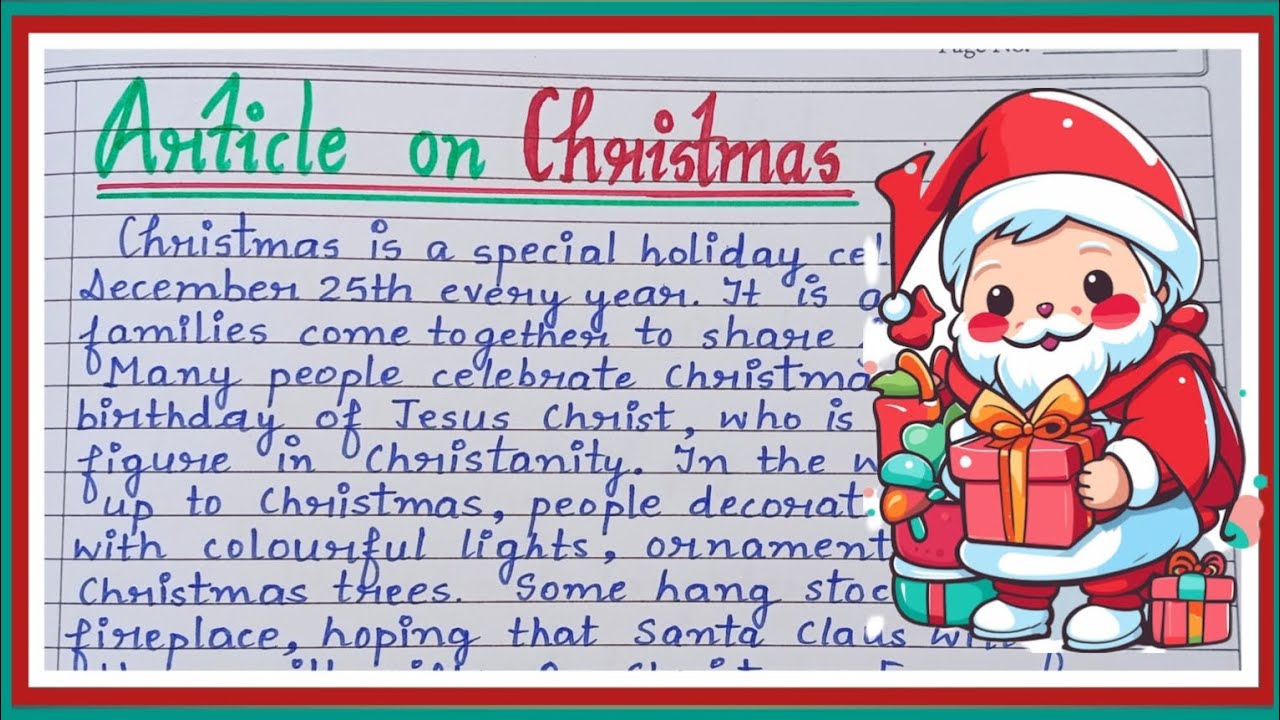 Page No.
Article on Christmas
Christmas is a special holiday cel
December 25th every year. It is a
families come together to share
Many people celebrate Christma
birthday of Jesus Christ, who is
figure in Christanity. In the w
up to Christmas, people decorat
with colourful lights, ornament
Christmas trees. Some hang stoc
fireplace, hoping that Santa Claus will